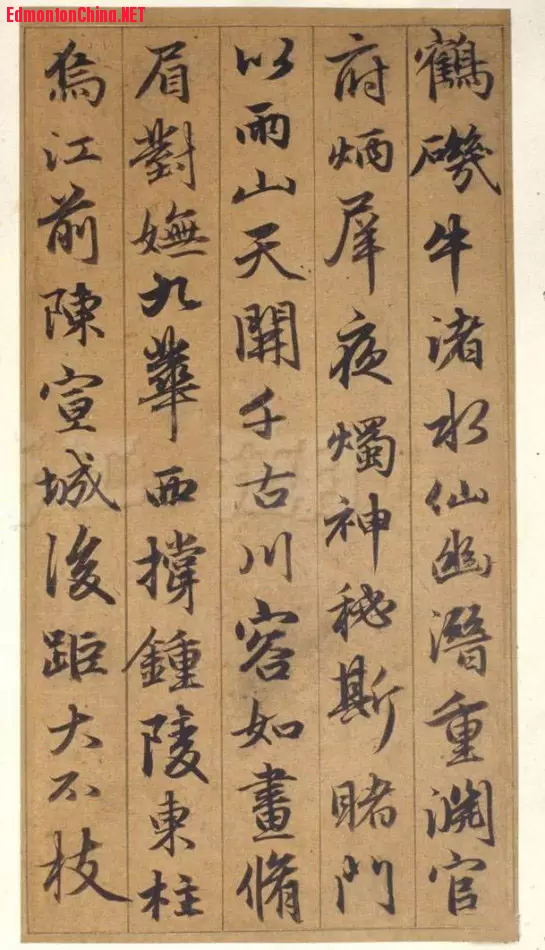 EdmontonChina.NET
鶴磯牛渚水仙幽潛重淵官
府炳犀夜燭神秘斯睹門
以兩山天開千古川容如畫脩
眉對嫵九華西撐鍾陵東柱
烏江前陳宣城後距大不枝